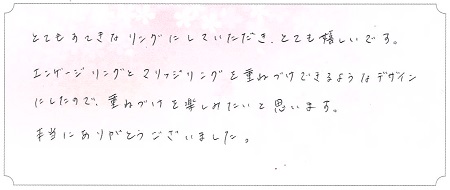 とてもすてきなリングにしていただき、とても嬉しいです。
エンゲージリングとマリッジリングを重ねづけできるようなデザイン
にしたので、重ねづけを楽しみたいと思います。
本当にありがとうございました。